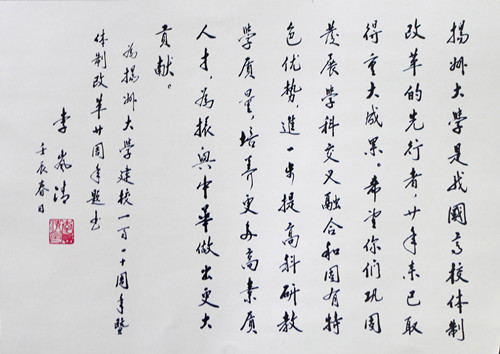 揚州大學是我國高校体制
改革的先行者，廿年来已取
得重大成果。希望你们巩固
发展学科交叉融合和固有特
色优势，進一步提高科研教
学质量，培养更多高素质
人才，为振興中華做出更大
贡献。
为揚州大学建校一百一十周年暨
体制改革廿周年题书
李嵐清
壬辰春日